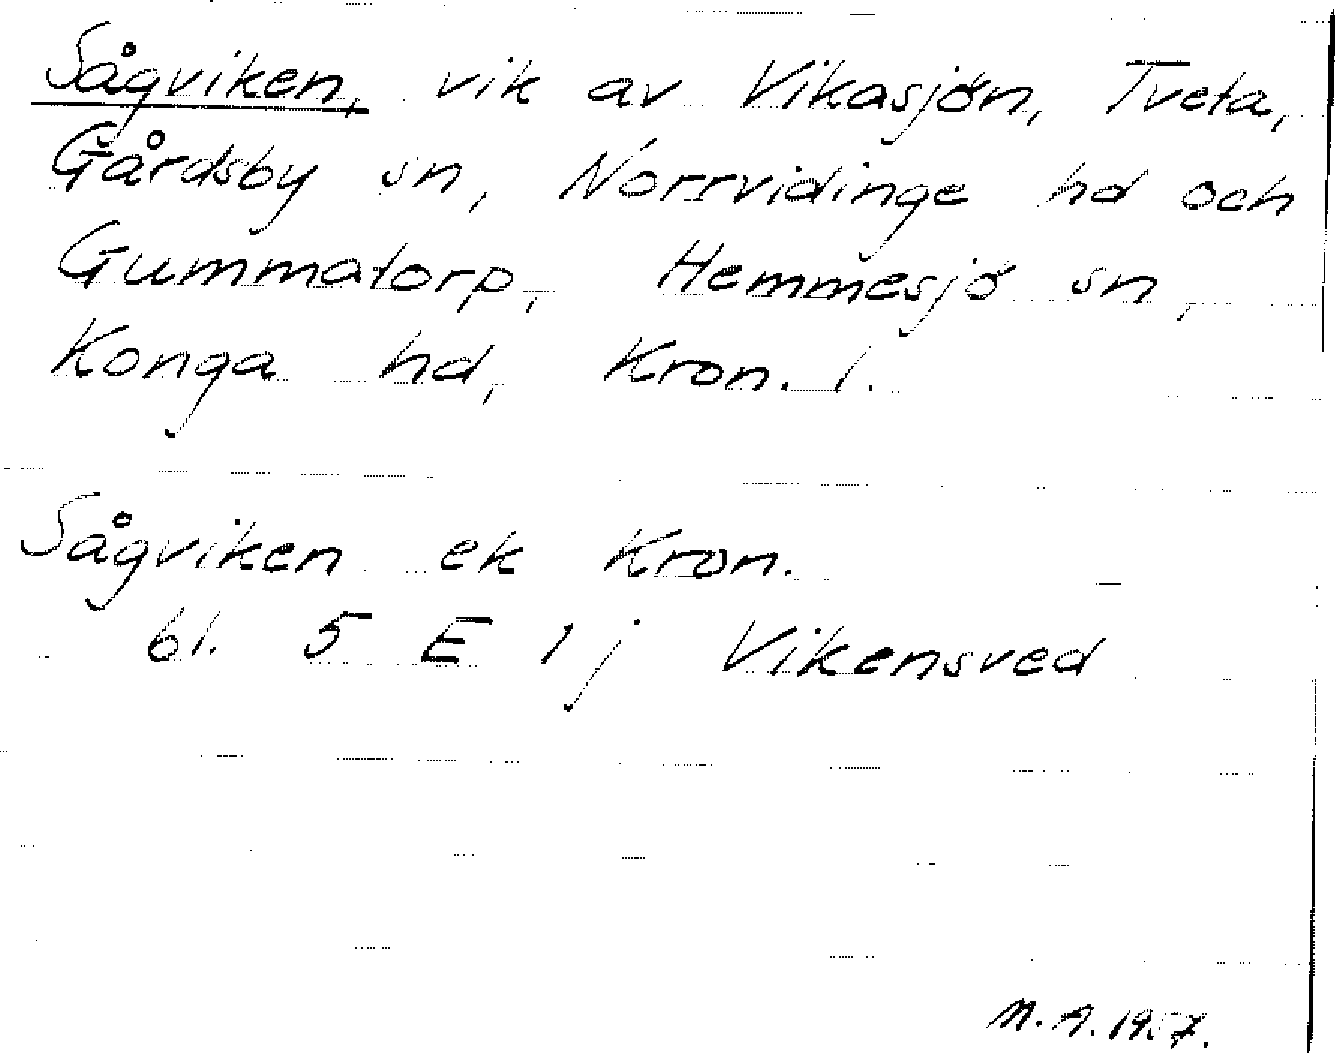 Sågviken, vik av Vikasjön, Tveta,
Gårdsby sn, Norrvidinge hd och
Gummatorp, Hemmesjö sn,
Konga hd, Kron. l.
Sågviken ek Kron.
bl. 5 E 1 j Vikensved
M.A. 1957.